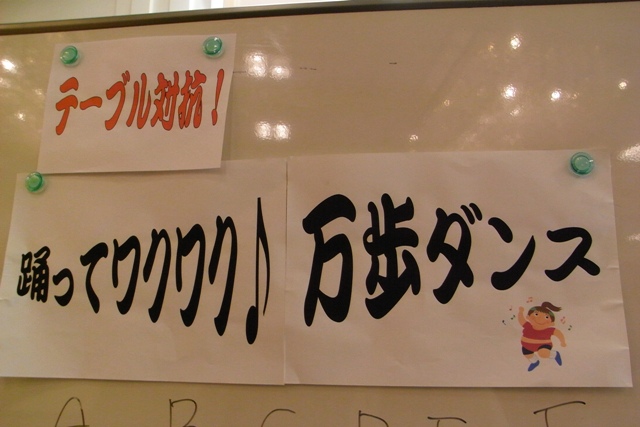 テーブル対抗!
踊ってワクワク♪ 万歩ダンス
A B C D E F